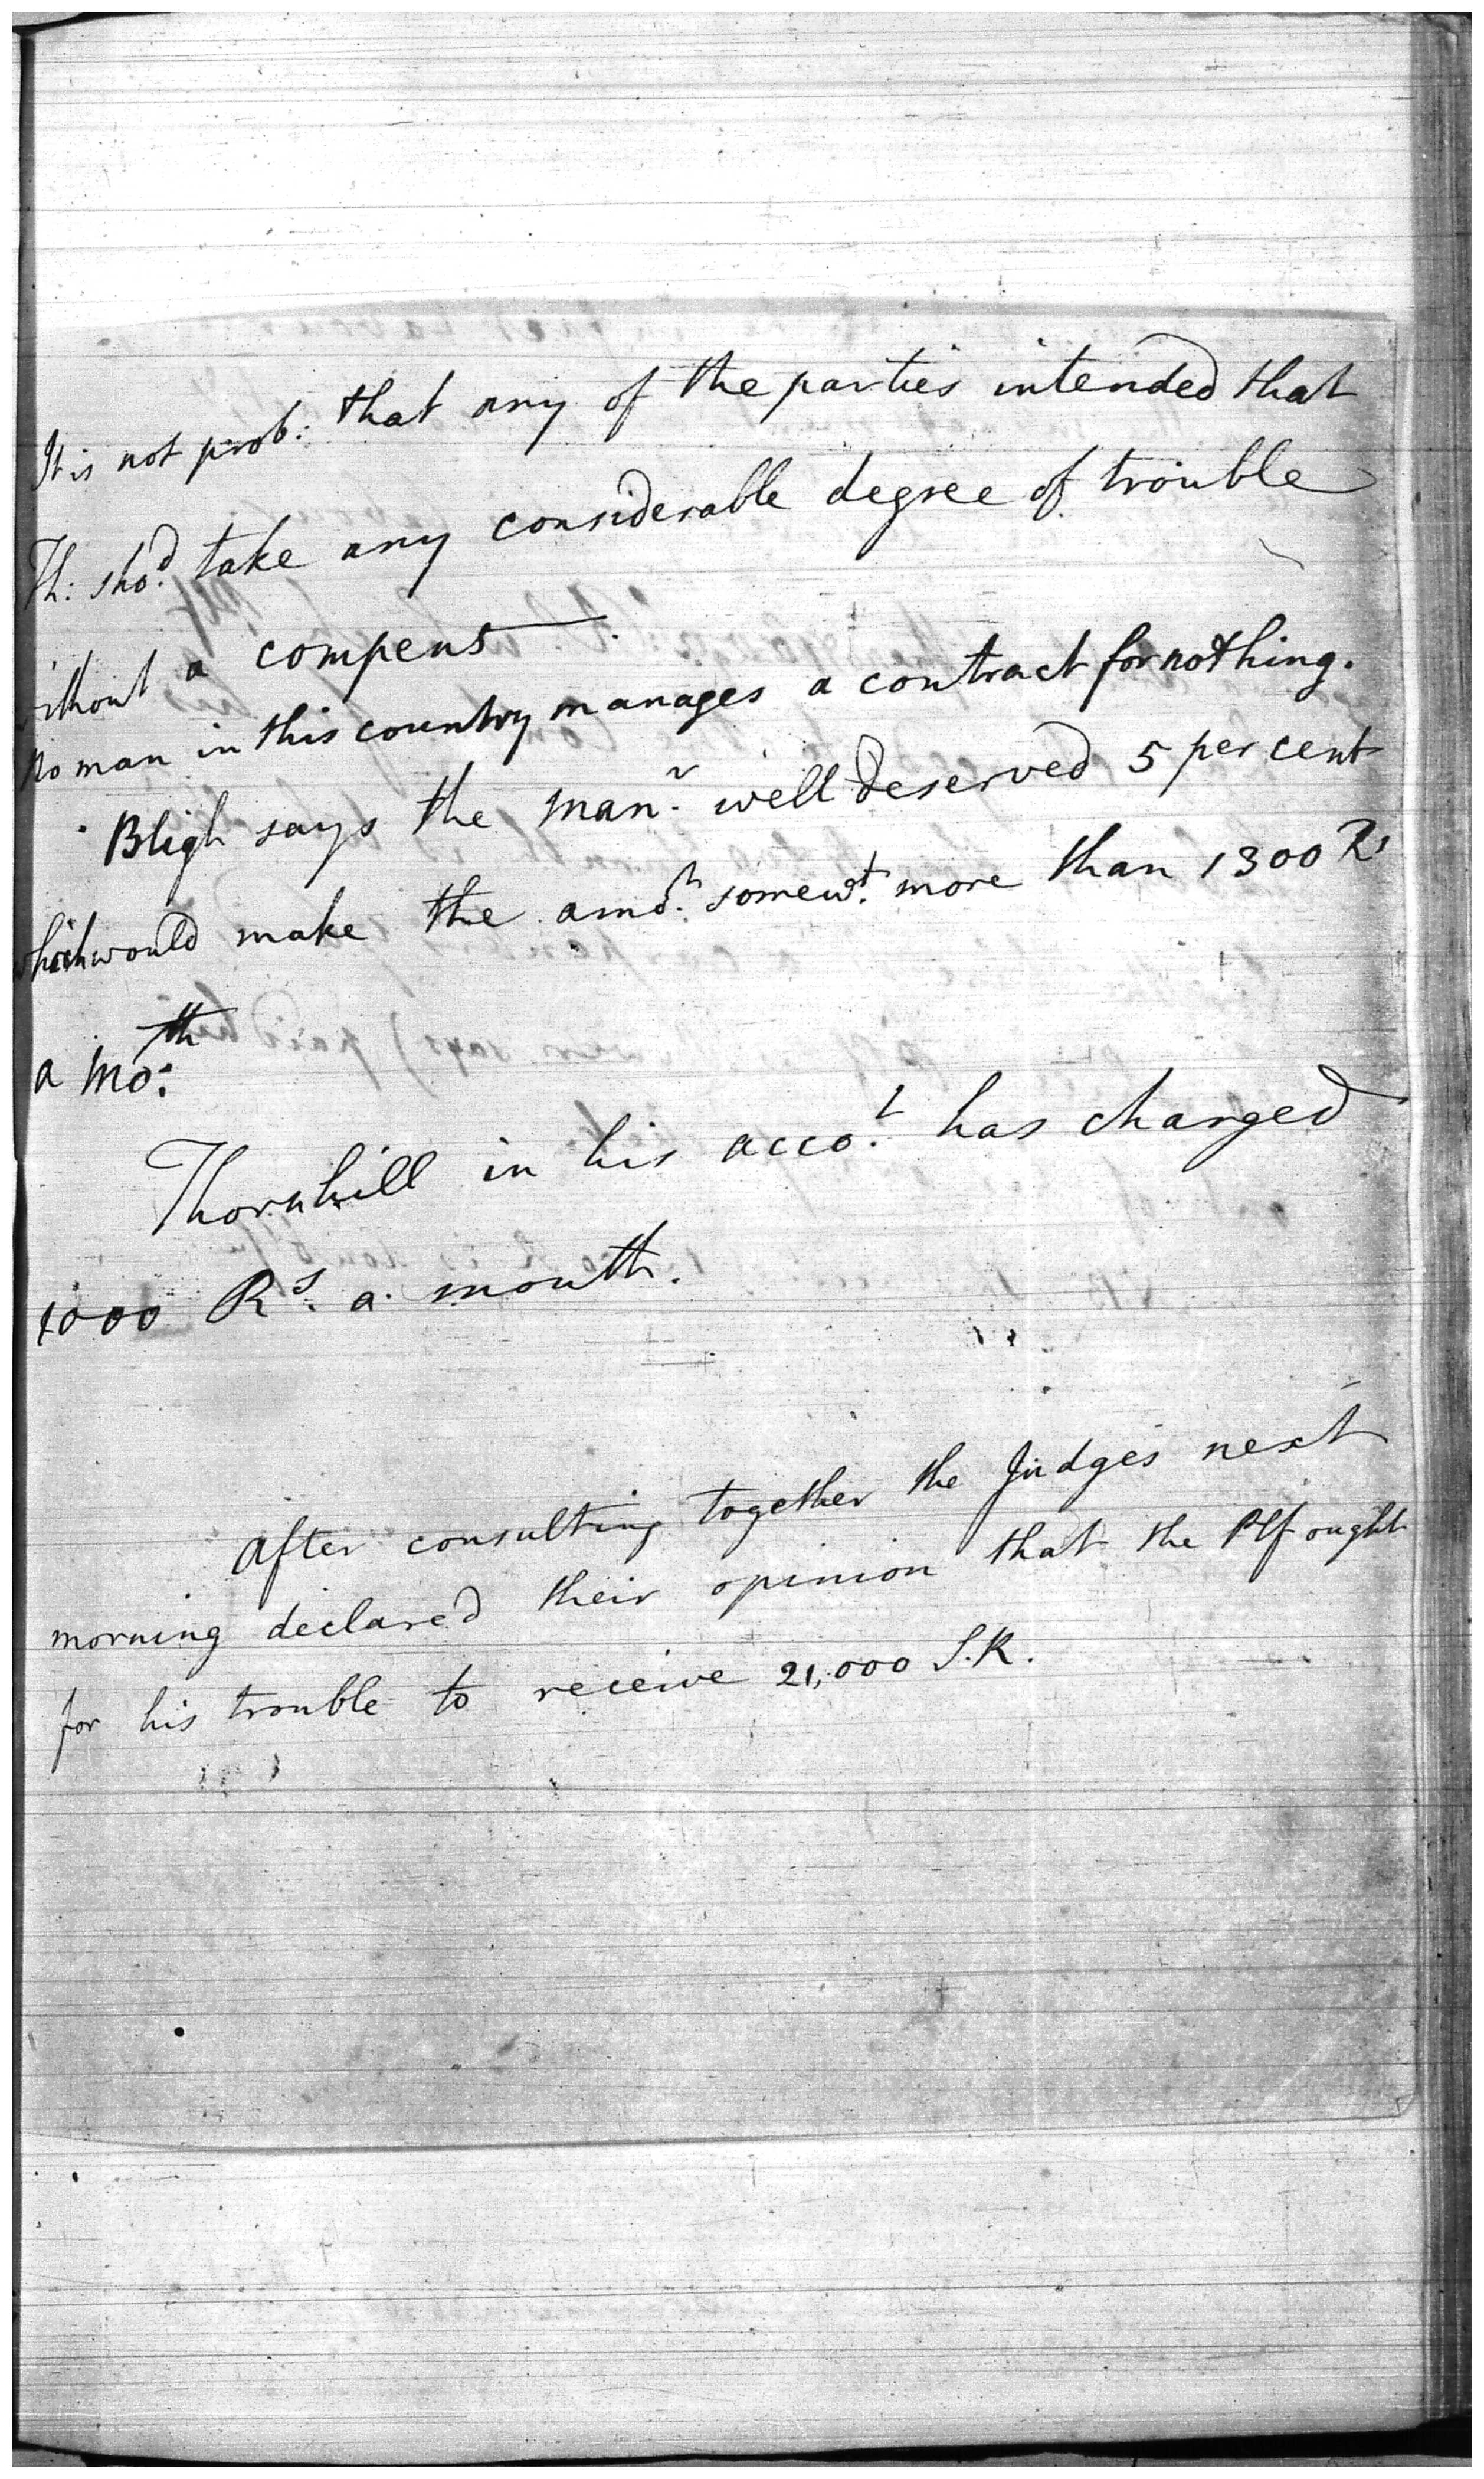 It is not prob: that any of the parties intended that
Th: sho.d take any considerable degree of trouble
without a compens
No man in this country manages a contract for nothing.
Bligh says the man.r well deserved 5 per cent
which would make the amo.t somew.t more than 1300 Rs
a mo:th
Thornhill in his acco.t has charged
1000 R.s a month.
After consulting together the Judges next
morning declared their opinion that the Plf ought
for his trouble to receive 21,000 S.R.